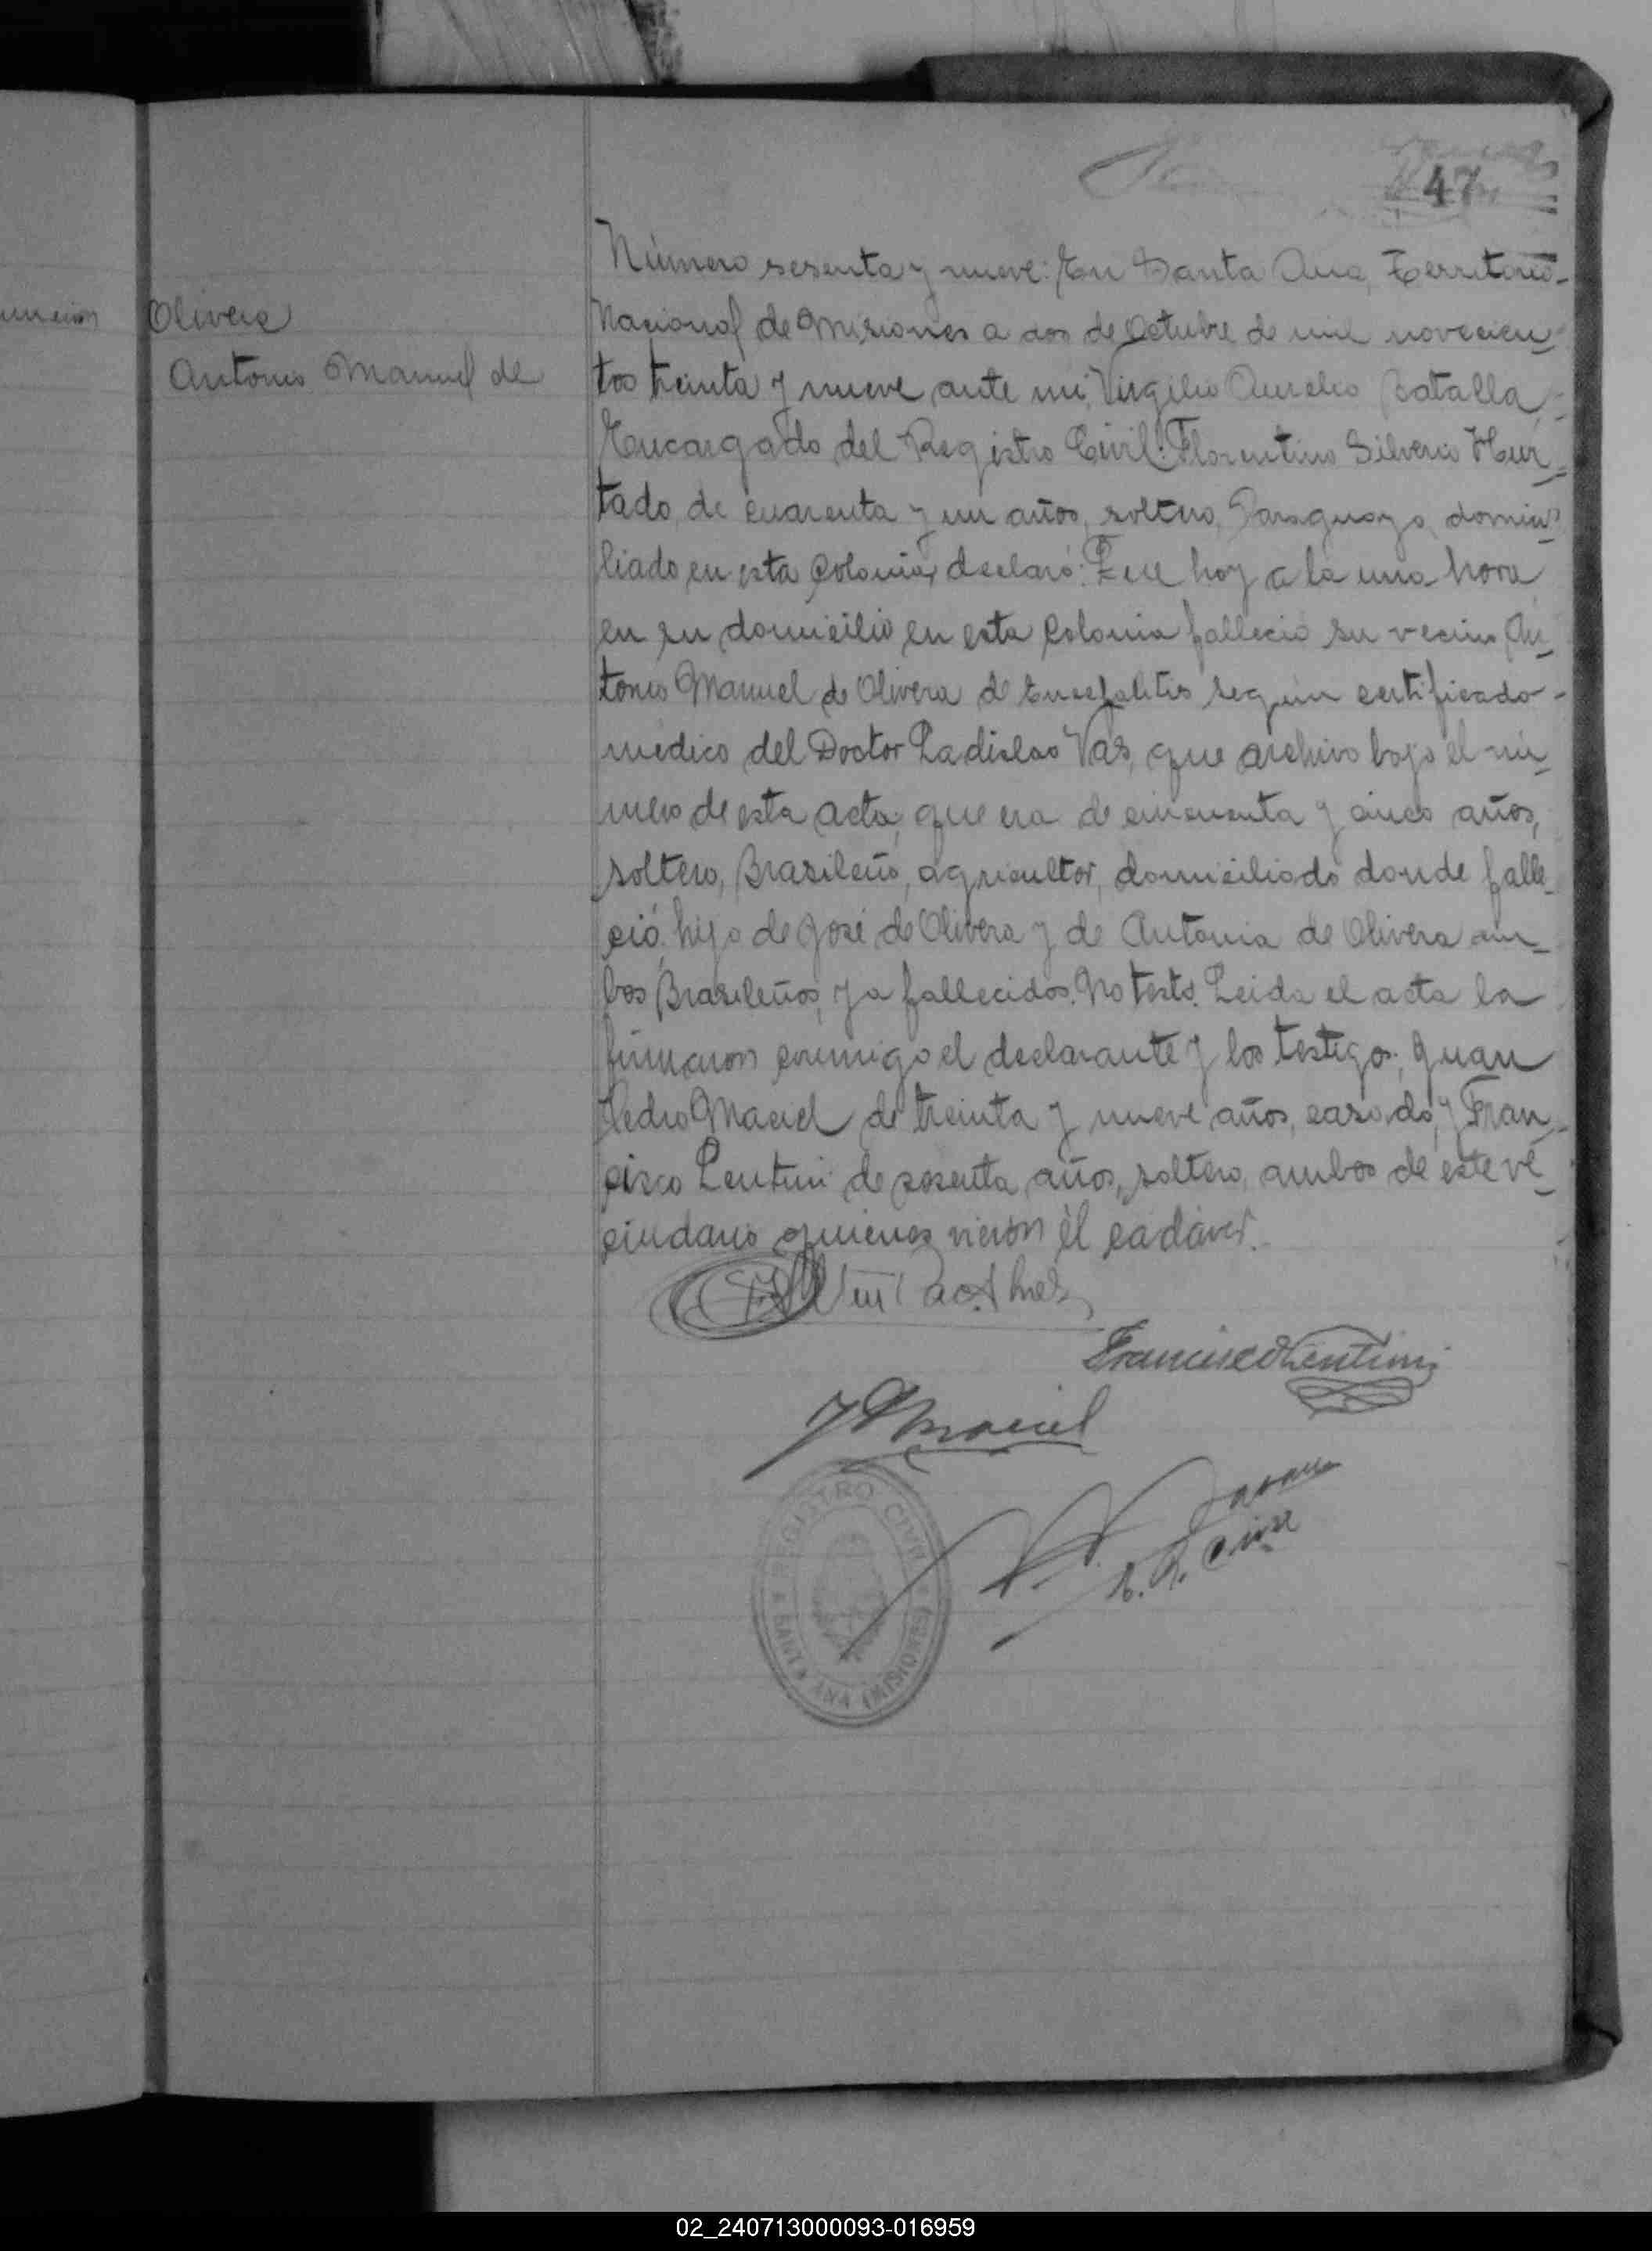 47
Olivera
Antonio Manuel de
Número sesenta y nueve: En Santa Ana, Territorio
Nacional de Misiones a dos de Octubre de mil novecien-
tos treinta y nueve ante mi, Virgilio Aurelio
Encargado del Registro Civil: Florentino Silverio Hur-
tado, de cuarenta y un años, soltero, Paraguayo, domici-
liado en esta Colonia, declaró: Que hoy a la una hora
en su domicilio en esta Colonia falleció su vecino An-
tonio Manuel de Olivera de Encefalitis según certificado
médico del Doctor Ladislao Vas, que archivo bajo el nú-
mero de esta acta, que era de cincuenta y cinco años,
soltero, Brasileño, agricultor, domiciliado donde falle-
ció, hijo de José de Olivera y de Antonia de Olivera am-
bos Brasileños, ya fallecidos. No testó. Leida el acta la
firmaron conmigo el declarante y los testigos, Juan
Pedro Maciel de treinta y nueve años, casado, y Fran-
cisco Lentini de sesenta años, soltero, ambos de este ve-
cindario quienes vieron él cadáver.
Francisco Lentini
J P Maciel
REGISTRO CIVIL
SANTA ANA (MISIONES)
02_240713000093-016959